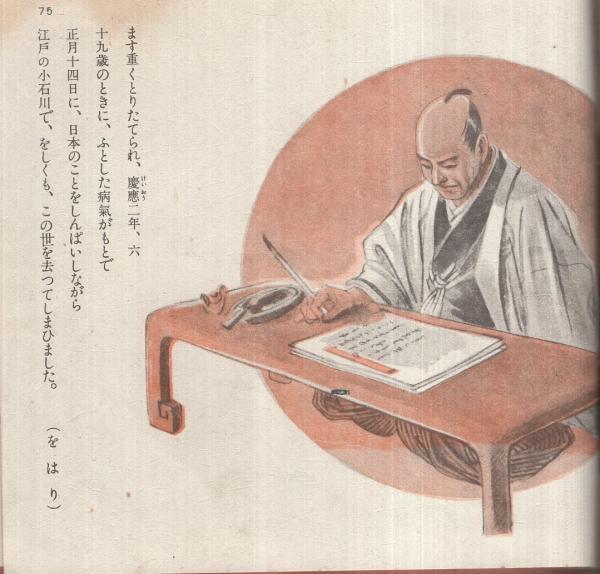 75
ます重くとりたてられ、慶應二年、六
けいおう
十九歳のときに、ふとした病氣がもとで
正月十四日に、日本のことをしんぱいしながら
江戸の小石川で、をしくも、この世を去つてしまひました。
(をはり)